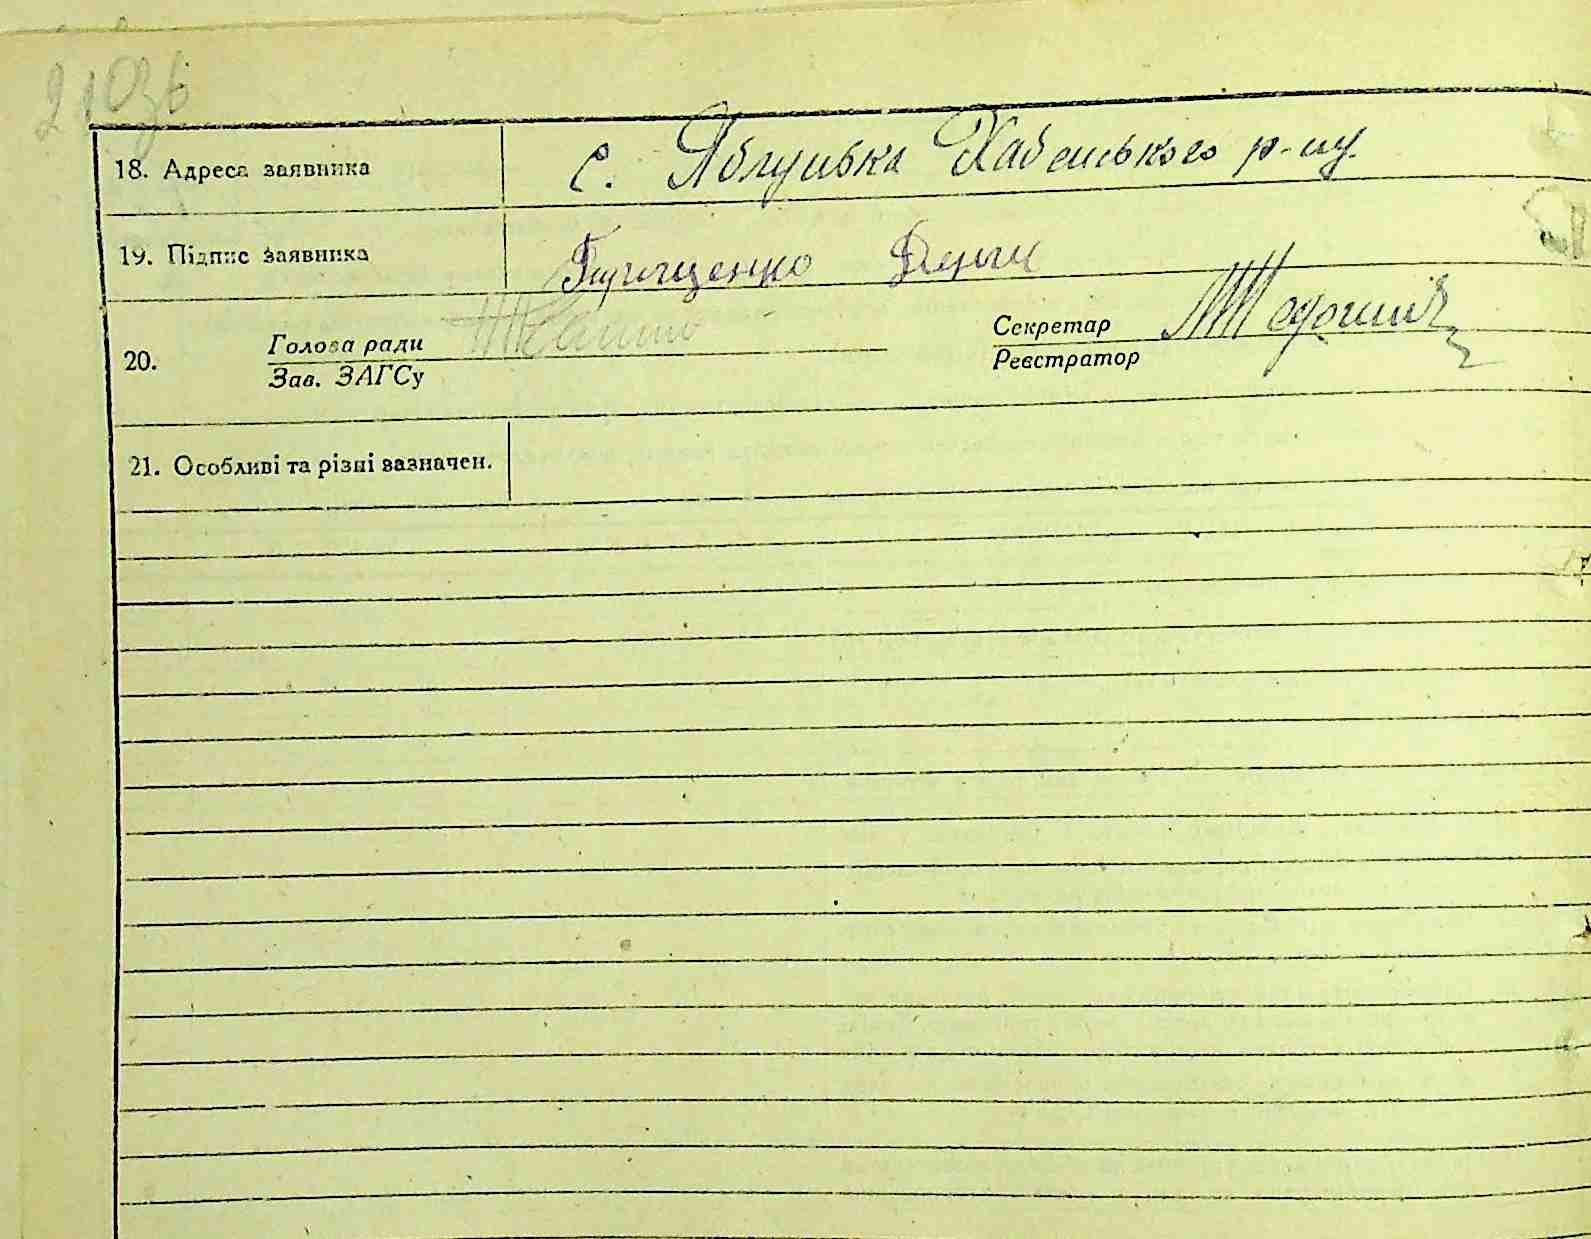 210зв
18. Адреса заявника с. Яблунька Хабенського р-ну.
19. Підпис заявника Грищенко
20. Голова ради Секретар
Зав. ЗАГСу Реєстратор
21. Особливі та різні зазначен.